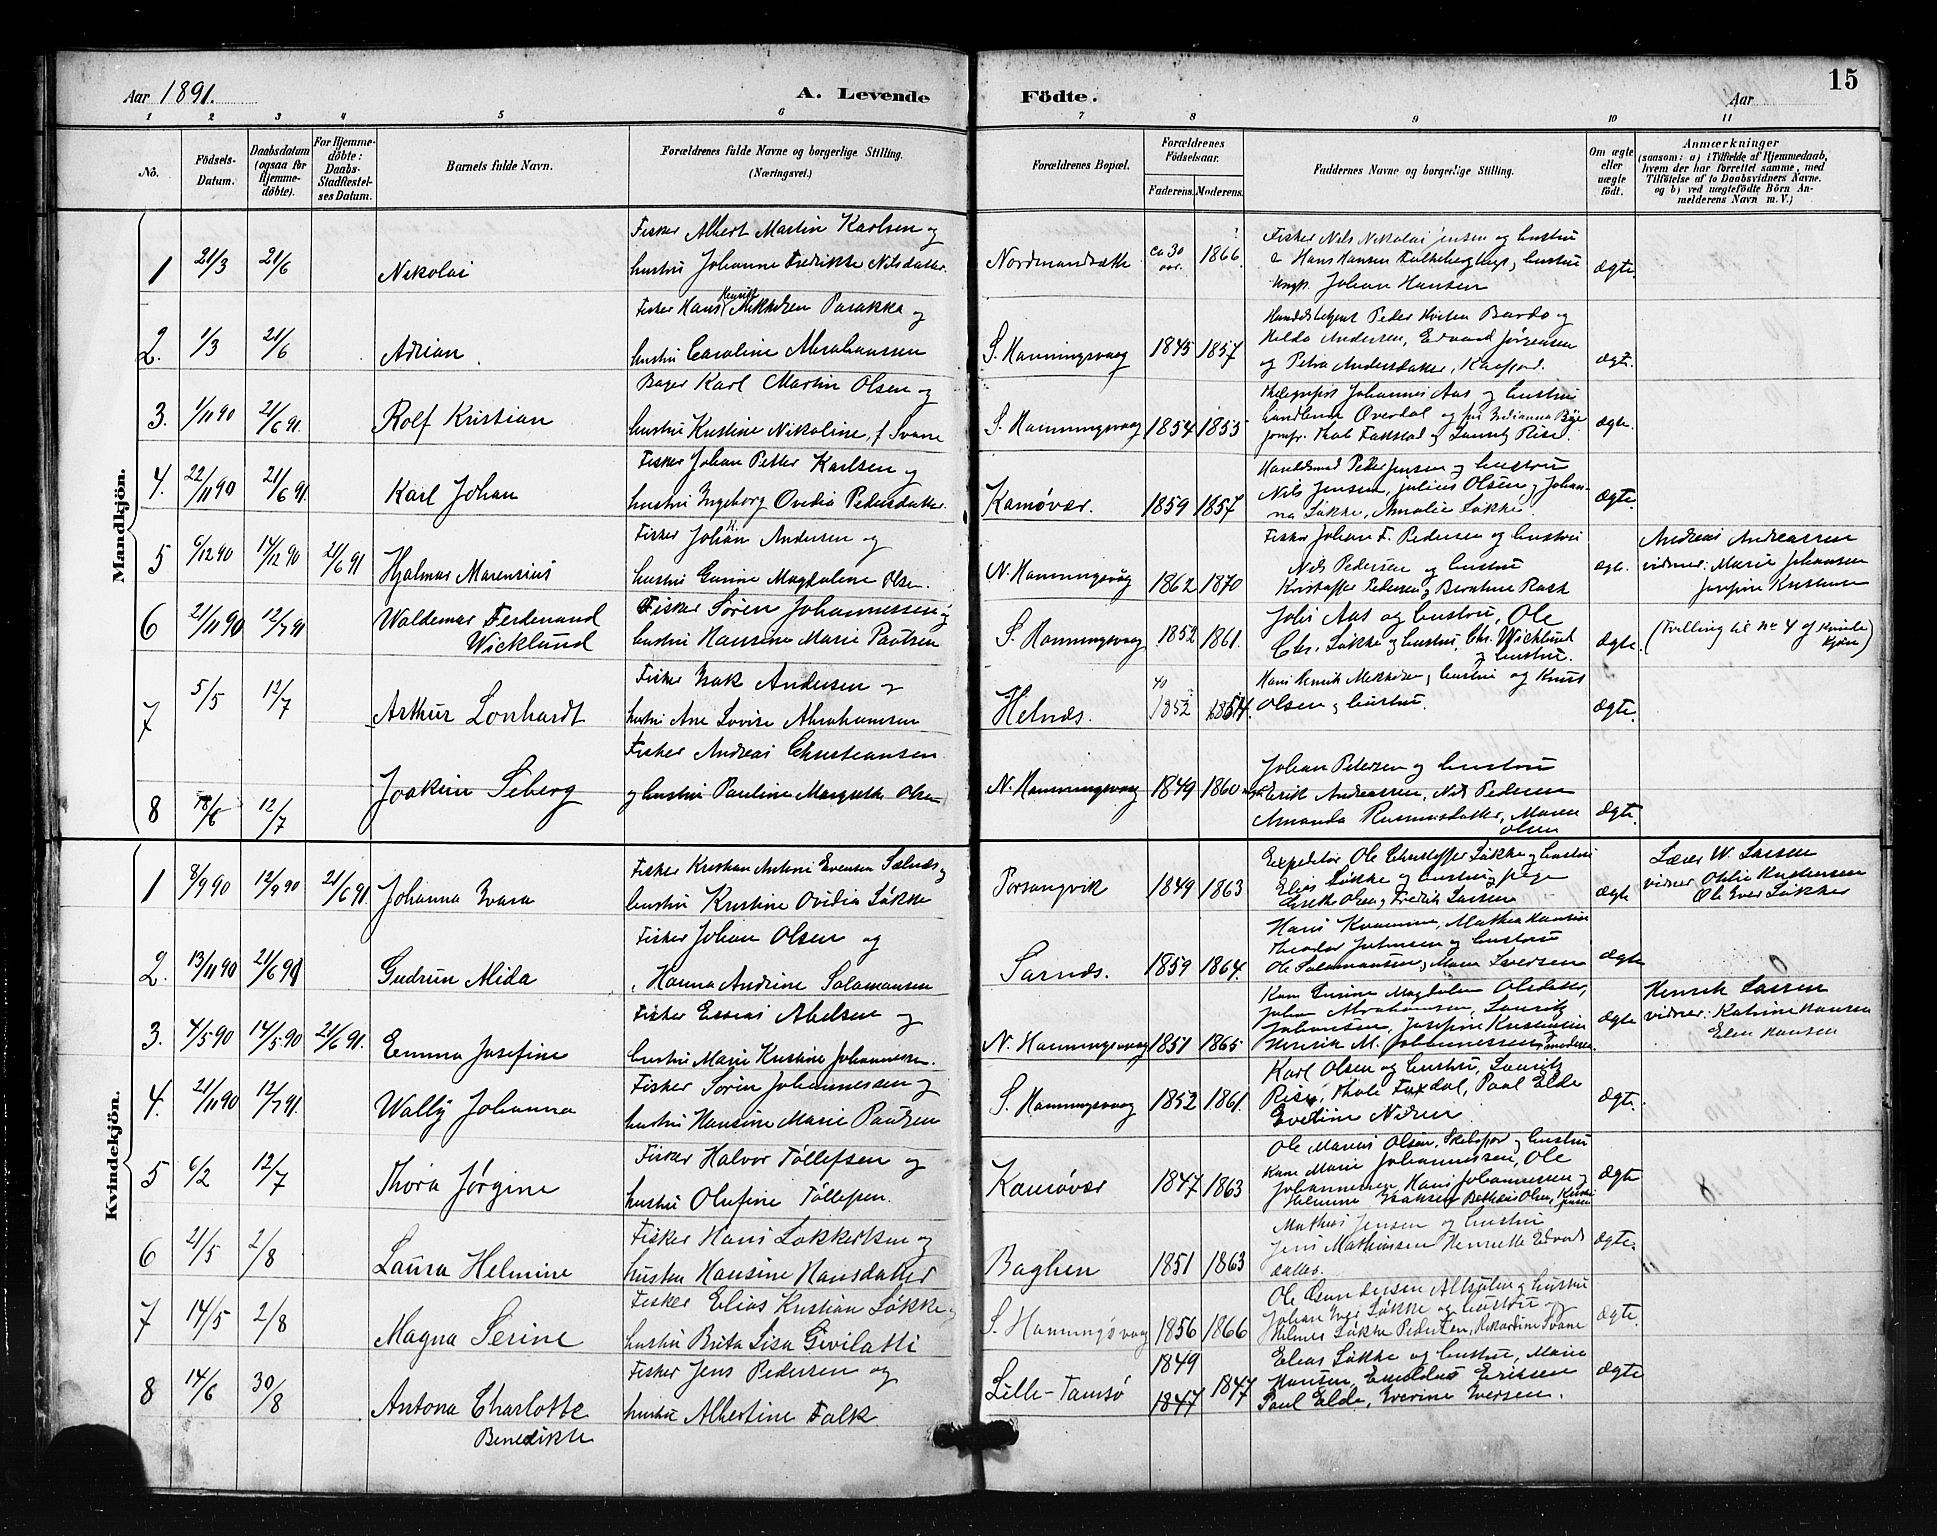 Aar 1891.
A. Levende Födte.
Aar
15
1 2 3 4 5 6 7 8 9 10 11
No.
Födsels-Datum.
Daabsdatum (ogsaa for Hjemmedöbte).
For Hjemmedöbte: Daabs-Stadfestelses Datum.
Barnets fulde Navn.
Forældrenes fulde Navne og borgerlige Stilling. (Næringsvei.)
Forældrenes Bopæl.
Forældrenes Födselsaar.
Faderens. Moderens.
Faddernes Navne og borgerlige Stilling.
Om ægte eller uægte födt.
Anmærkninger
(saasom: a) i Tilfælde af Hjemmedaab, hvem der har forrettet samme, med Tilföielse af to Daabsvidners Navne. og b) ved uægtefödte Börn Anmelderens Navn m. V.)
Mandkjön.
1 21/3 21/6 Nikolai
Fisker Albert Martin Karlsen og
hustru Johanne Fredrikke Nilsdatter
Nordmandsætte ca 30 aar. 1866.
Fisker Nils Nikolai Jensen og hustru
Hans Hansen hustru
Ungk. Johan Hansen
ægte.
2. 1/3 21/6 Adrian.
Fisker Hans Henrik Mikkelsen Parakka og
hustru Caroline Abrahamsen
S. Honningsvaag 1845 1857
Peder Bardo og
Hilda Andersen, Edvard Jørgensen
og Petra Andersdatter, Kaafjord.
ægt.
3. 1/11 90 21/6 91. Rolf Kristian
Bager Karl Martin Olsen og
hustru Kristine Nikoline, f Svane
S. Honningsvaag 1854 1853
Johannes Aas og hustru
Overdal og
jomfr. Lauritz Riise.
ægte.
4. 22/11 90 21/6 91. Karl Johan
Fisker Johan Petter Karlsen og
hustru Ingeborg Ovidia Pedersdatter.
Kamøvær. 1859 1857
Handelsmand Peder Jensen og hustru
Nils Jensen, Julius Olsen, Johan-
na Løkke, Amalie Løkke.
ægte.
5 6/12 90 14/12 90 21/6 91 Hjalmar Marensius
Fisker Johan H. Andersen og
hustru Gurine Magdaline Olsen.
N. Honningsvåg 1862 1870
Fisker Johan F. Pedersen og hustru
Nils Pedersen og hustru
Kristoffer Pedersen og Berntine Rask
ægte.
Andreas Andreassen
vidner: Marie Johansen
Josefine Kristensen
6 21/11 90 12/7 91 Waldemar Ferdinand
Wicklund
Fisker Søren Johannessen og
hustru Hansine Marie Paulsen
S. Honningsvaag 1852 1861.
Johs Aas og hustru, Ole
Chr. Løkke og hustru, Chr. Wicklund
og hustru.
ægte.
(Tvilling til No 4 af Kvinde
kjøn)
7 5/5 12/7 Arthur Lonhardt
Fisker Isak Andersen og
hustru Ane Lovise Abrahamsen
Helnæs. 1852 1854.
Hans Henrik Mikkelsen, hustru og Knut
Olsen og hustru.
ægte.
8 18/6 12/7 Joakim Seberg
Fisker Andreas Christiansen
og hustru Pauline Margrethe Olsen
N. Honningsvaag 1849 1860
Johan Petersen og hustru
Erik Andreassen, Nils Pedersen
Amanda Rasmusdatter, Maren
Olsen
ægte.
Kvindekjön.
1 8/9 90 12/9 90 21/6 91. Johanna Ivara
Fisker Kristian Antoni Evensen Sælnæs og
hustru Kristine Ovidia Løkke
Porsangvik 1849 1863
Expeditør Ole Christoffer Løkke og hustru
Elias Løkke og hustru, pige
Olsen, Fredrik Larsen
ægte
Lærer W. Larsen
vidner Othlie Kristensen
Ole Iver Løkke
2. 13/11 90 21/6 91 Gudrun Alida
Fisker Johan Olsen og
Hanna Andrine Salamonsen
Sarnæs. 1859 1864.
Hans, Mathea Hansen
Theodor Johnsen og hustru
Ole Salamonsen, Iversen
ægte
3. 4/5 90 14/5 90 21/6 91. Emma Josefine
Fisker Esaias Abelsen og
hustru Marie Kristine Johannessen.
N. Honningsvaag 1851 1865
Magdalene Olsdatter,
Johan Abrahamsen, Lauritz
Johansen, Josefine Kristiansen
Henrik M. Johannessen,
ægte
Henrik Larsen
vidner: Katrine Hansen
Elen Hansen
4. 21/11 90 12/7 91. Wally Johanna
Fisker Søren Johannessen og
hustru Hansine Marie Paulsen
S. Honningsvaag 1852 1861.
Karl Olsen og hustru, Lauritz
Riise, Paul Elde
Eveline Nilsen
ægte.
5 6/2 12/7 Thora Jørgine
Fisker Halvor Tollefsen og
hustru Olufine Tollefsen.
Kamøvær 1847 1863
Ole Marius Olsen, og hustru
Kane Marie Johannessen, Ole
Johannessen, Hans Johannessen og
Isaksen, Olsen,
ægte
8
6 21/5 2/8 Laura Helmine
Fisker Hans Lokkertsen og
hustru Hansine Hansdatter
Bughen 1851 1863
Mathis Jensen og hustru
Jens Mathiassen Henrikke Edvards
datter.
ægte.
7 14/5 2/8 Magna Serine
Fisker Elias Kristian Løkke og
hustru Brita Lisa Givilatti
S. Honningsvaag 1856 1866
Ole og hustru
Johan Løkke og hustru
Løkke Pedersen, Rikardine Svane
ægte.
8 14/6 30/8 Antona Charlotte
Benedikte
Fisker Jens Pedersen og
hustru Albertine Falk
Lille-Tamsø 1849 1847 1847
Elias Løkke og hustru, Marie
Hansen, Eriksen
Paul Elde, Iversen.
ægte